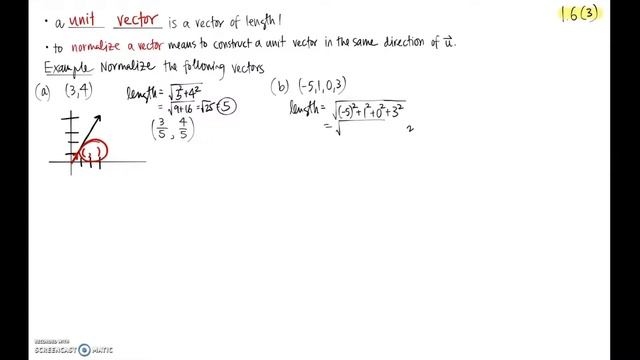 1.6 (3)
• a unit vector is a vector of length 1
• to normalize a vector means to construct a unit vector in the same direction of u⃗.
Example Normalize the following vectors
(a) (3,4) length = √3²+4²
= √9+16 = √25 = 5
(3/5, 4/5)
(b) (-5,1,0,3)
length = √(-5)²+1²+0²+3²
= √
RECORDED WITH
SCREENCAST MATIC